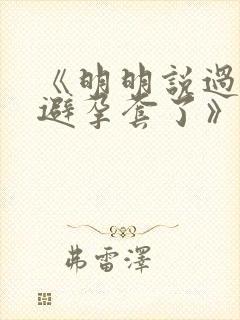 《明明說過
避孕套了》
弗雷澤